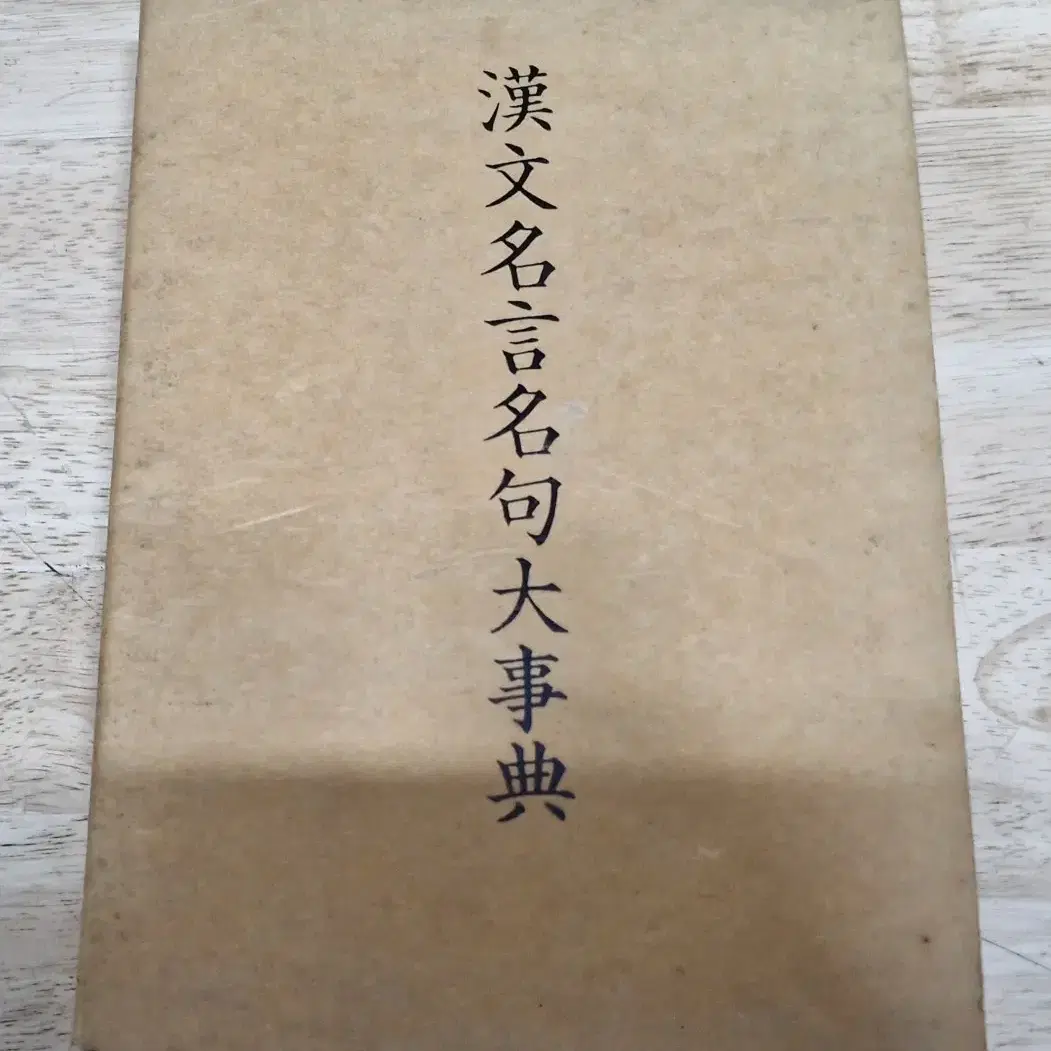 漢文名言名句大事典